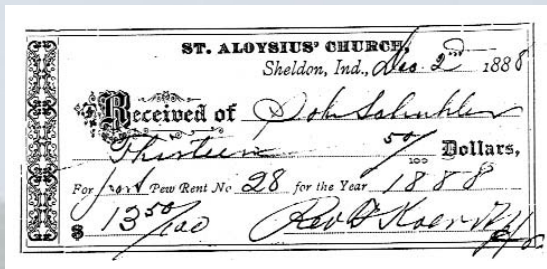 ST. ALOYSIUS' CHURCH,
Sheldon, Ind., Dec 2nd 1888
Received of
Thirteen 50/100 Dollars,
For part Pew Rent No 28 for the Year 1888
$ 13 50/100 Rev